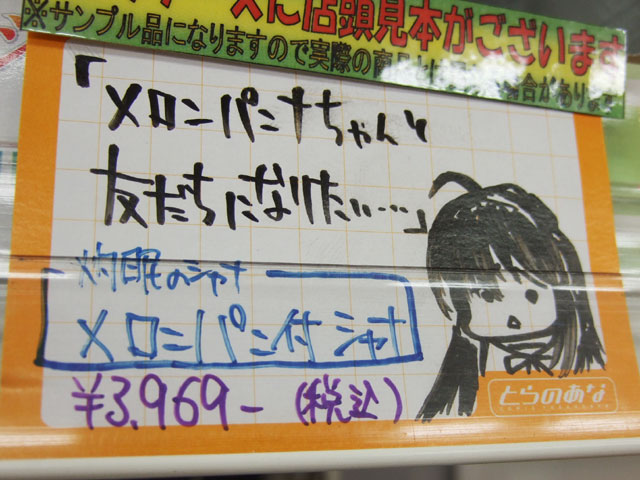 ズに店頭見本がございます
※サンプル品になりますので実際の商品と
合がありま
「メロンパンナちゃんと
友だちになりたい…」
灼眼のシャナ
メロンパン付シャナ
¥3,969-(税込)
とらのあな